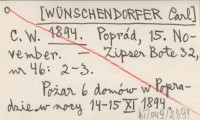 [WÜNSCHENDORFER Carl]
C. W. 1894. Poprád, 15. No-
vember. - Zipser Bote 32,
nr 46: 2-3.
Pożar 6 domów w Popra-
dzie w nocy 14-15 XI 1894.